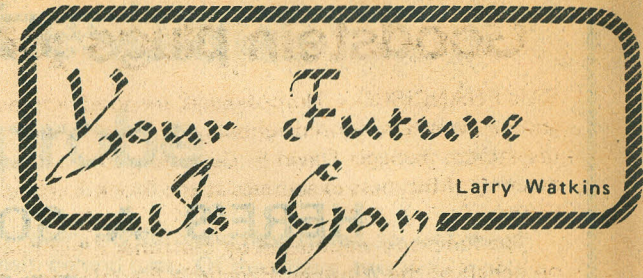 Your Future
Is Gay
Larry Watkins